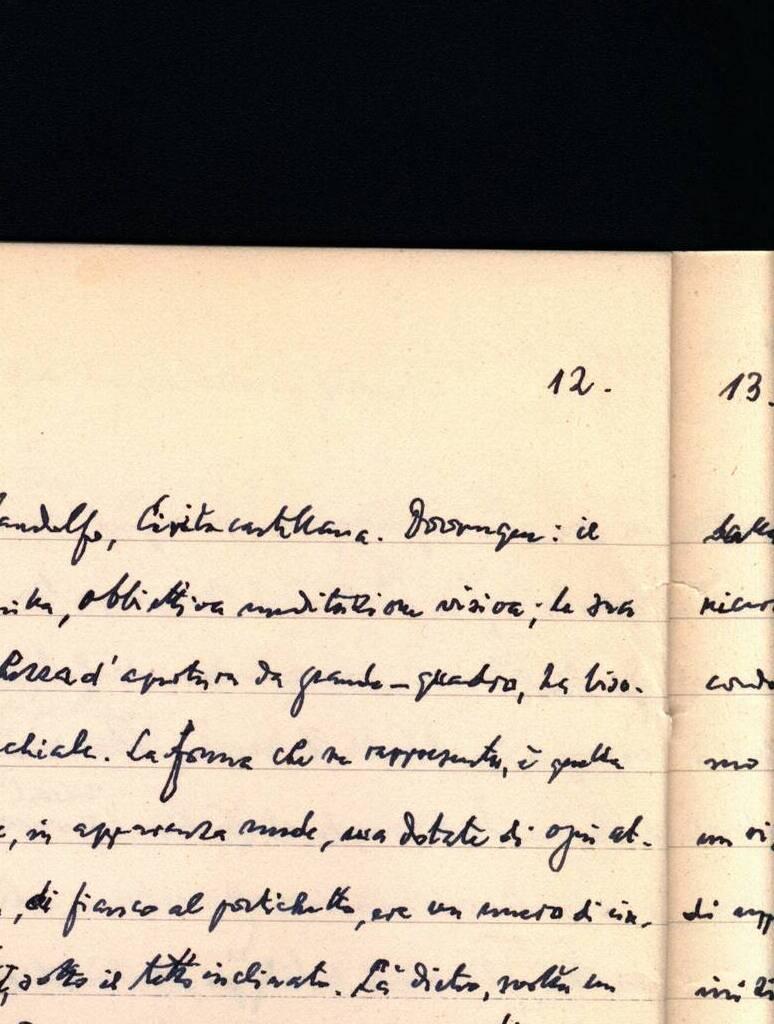 12.
13.
andolfo, Civita castellana. Dovunque: il
obbiettiva meditazione visiva; la sua
d'apertura da grande-quadro, ha biso-
chiale. La forma che ne rappresenta, è quella
, in apparenza nude, ma dotate di ogni at-
, di fianco al portichetto, era un muro di cin-
sotto il tetto inclinato. Là dietro, svolta un
mo
di